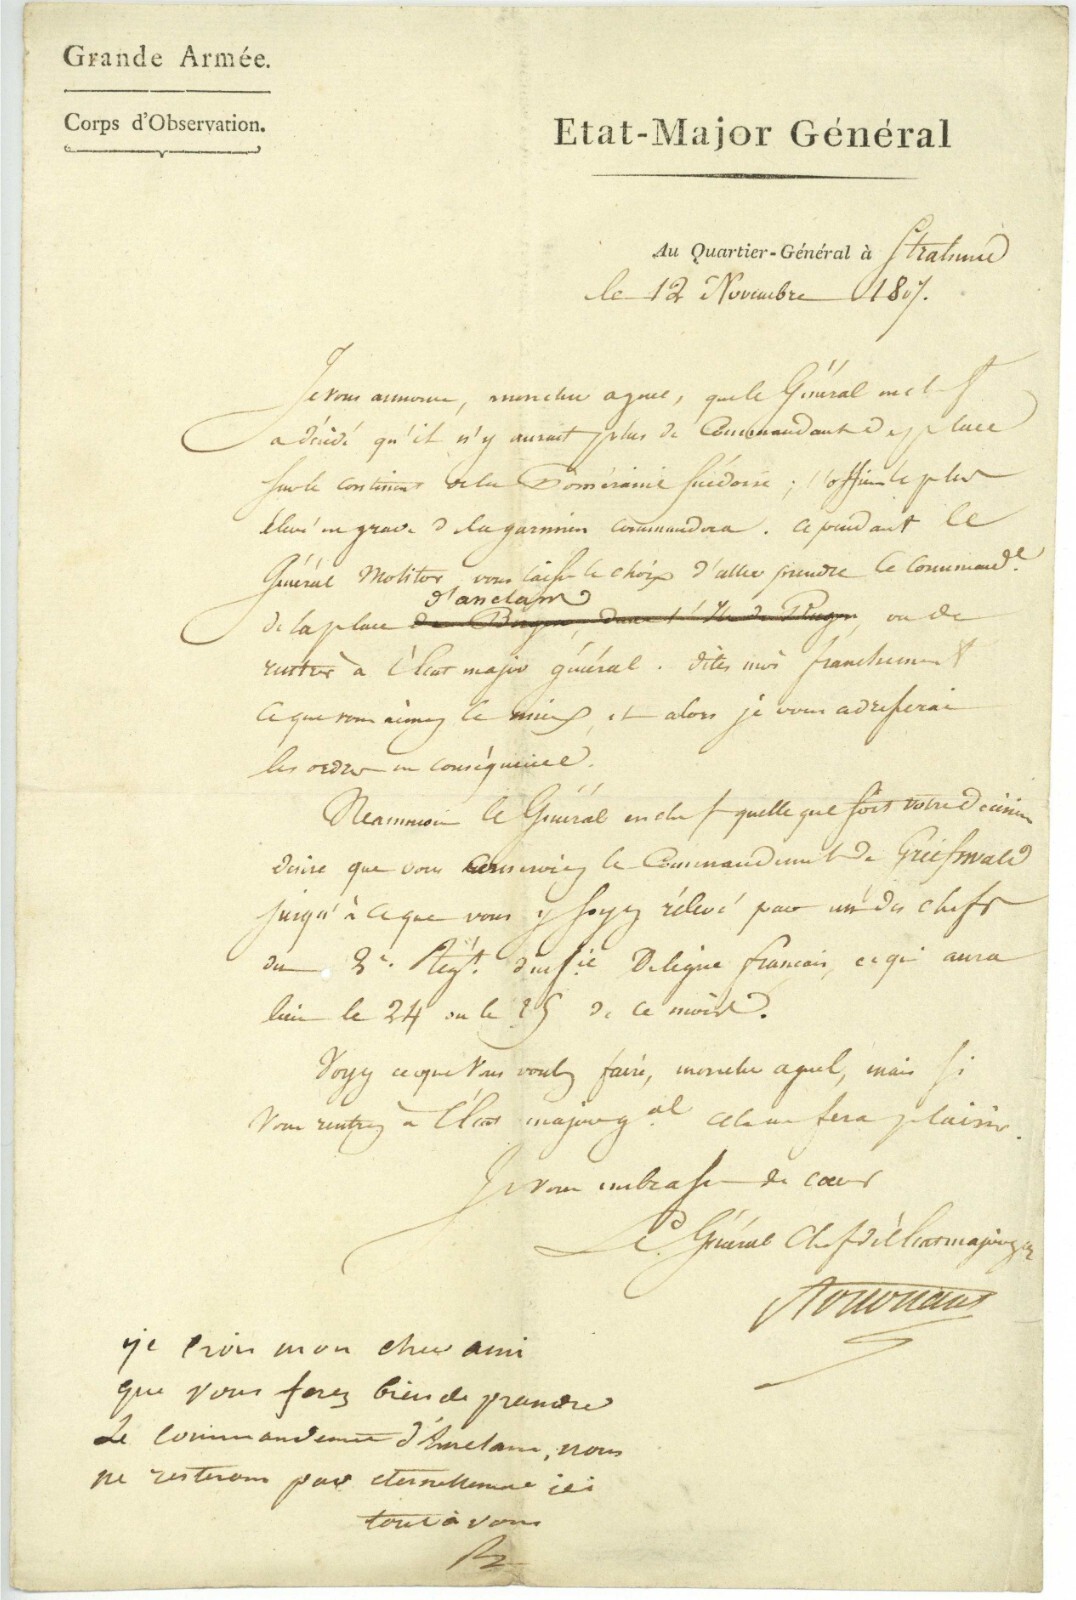 Grande Armée.
Corps d'Observation.
Etat-Major Général
Au Quartier-Général à Stralsund
le 12 Novembre 1807.
Je vous annonce, mon cher agnel, que le Général en chef
a décidé qu'il n'y aurait plus de Commandant de place
sur le continent de la Poméranie Suédoise; l'officier le plus
élevé en grade de la garnison commandera. cependant le
Général Molitor vous laisse le choix d'aller prendre le commandt
d'anclam
de la place de Bergen, dans l'Ile de Rugen, ou de
rentrer à l'Etat major général. dites moi franchement
ce que vous aimez le mieux, et alors je vous adresserai
les ordres en conséquence.
Néanmoins le Général en chef quelle que soit votre décision
désire que vous conserviez le Commandement de Greifswald
jusqu'à ce que vous y soyez rélevé par un des chefs
du 3e. Régt. d'infie De ligne français, ce qui aura
lieu le 24 ou le 25 de ce mois.
Voyez ce que vous voulez faire, mon cher agnel, mais si
vous rentrez à l'Etat major gal cela me fera plaisir.
Je vous embrasse de cœur
Le Général Chef de l'Etat major gal
je crois mon cher ami
que vous ferez bien de prendre
Le commandement d'Anclam, nous
ne resterons pas eternellement ici
tout à vous